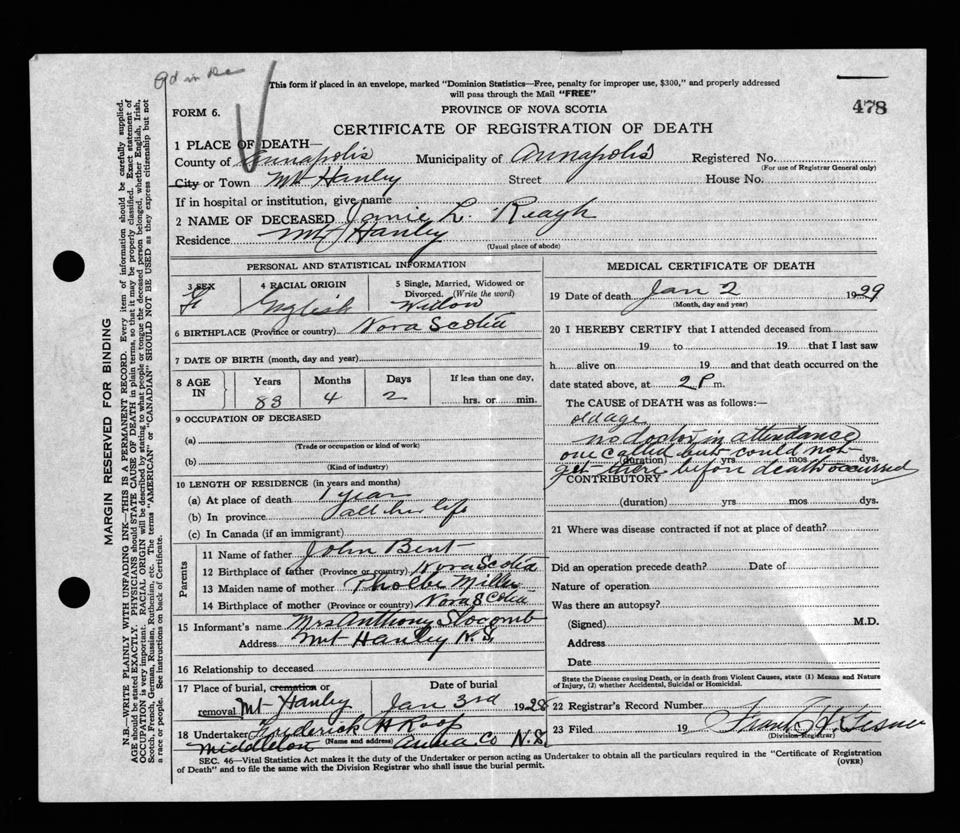 This form if placed in an envelope, marked "Dominion Statistics—Free, penalty for improper use, $300," and properly addressed
will pass through the Mail "FREE"
PROVINCE OF NOVA SCOTIA
478
FORM 6.
CERTIFICATE OF REGISTRATION OF DEATH
1 PLACE OF DEATH—
County of Annapolis Municipality of Annapolis Registered No.
(For use of Registrar General only)
City or Town Mt Hanley Street House No.
If in hospital or institution, give name
2 NAME OF DECEASED Janie L. Reagh
Residence Mt Hanley
(Usual place of abode)
PERSONAL AND STATISTICAL INFORMATION
3 SEX 4 RACIAL ORIGIN 5 Single, Married, Widowed or
Divorced. (Write the word)
F English Widow
6 BIRTHPLACE (Province or country) Nova Scotia
7 DATE OF BIRTH (month, day and year)
8 AGE IN Years Months Days If less than one day,
83 4 2 hrs. or min.
9 OCCUPATION OF DECEASED
(a)
(Trade or occupation or kind of work)
(b)
(Kind of industry)
10 LENGTH OF RESIDENCE (in years and months)
(a) At place of death 1 year
(b) In province all her life
(c) In Canada (if an immigrant)
Parents
11 Name of father John Bent
12 Birthplace of father (Province or country) Nova Scotia
13 Maiden name of mother Phoebe Miller
14 Birthplace of mother (Province or country) Nova Scotia
15 Informant's name Mrs Anthony Slocomb
Address Mt Hanley N.S.
16 Relationship to deceased
17 Place of burial, cremation or Date of burial
removal Mt Hanley Jan 3rd 1928
18 Undertaker Frederick H Roop
(Name and address)
Middleton Anna Co N.S.
MEDICAL CERTIFICATE OF DEATH
19 Date of death Jan 2 1929
(Month, day and year)
20 I HEREBY CERTIFY that I attended deceased from
19 to 19 that I last saw
h alive on 19 and that death occurred on the
date stated above, at 2 P. m.
The CAUSE of DEATH was as follows:—
old age
no doctor in attendance
one called but could not
(duration) yrs mos dys.
get there before death occurred
CONTRIBUTORY
(duration) yrs mos dys.
21 Where was disease contracted if not at place of death?
Did an operation precede death? Date of
Nature of operation
Was there an autopsy?
(Signed) M.D.
Address
Date
State the Disease causing Death, or in death from Violent Causes, state (1) Means and Nature
of Injury, (2) whether Accidental, Suicidal or Homicidal.
22 Registrar's Record Number
23 Filed 19 Frank H.
(Division Registrar)
SEC. 46—Vital Statistics Act makes it the duty of the Undertaker or person acting as Undertaker to obtain all the particulars required in the "Certificate of Registration
of Death" and to file the same with the Division Registrar who shall issue the burial permit.
(OVER)
MARGIN RESERVED FOR BINDING
N.B.—WRITE PLAINLY WITH UNFADING INK—THIS IS A PERMANENT RECORD. Every item of information should be carefully supplied.
AGE should be stated EXACTLY. PHYSICIANS should STATE CAUSE OF DEATH in plain terms, so that it may be properly classified. Exact statement of
OCCUPATION is very important. RACIAL ORIGIN will be described by stating to what people or tongue the deceased person belonged, whether English, Irish,
Scotch, French, German, Russian, Ruthenian, etc. The terms "AMERICAN" or "CANADIAN" SHOULD NOT BE USED as they express citizenship but not
a race or people. See instructions on back of Certificate.